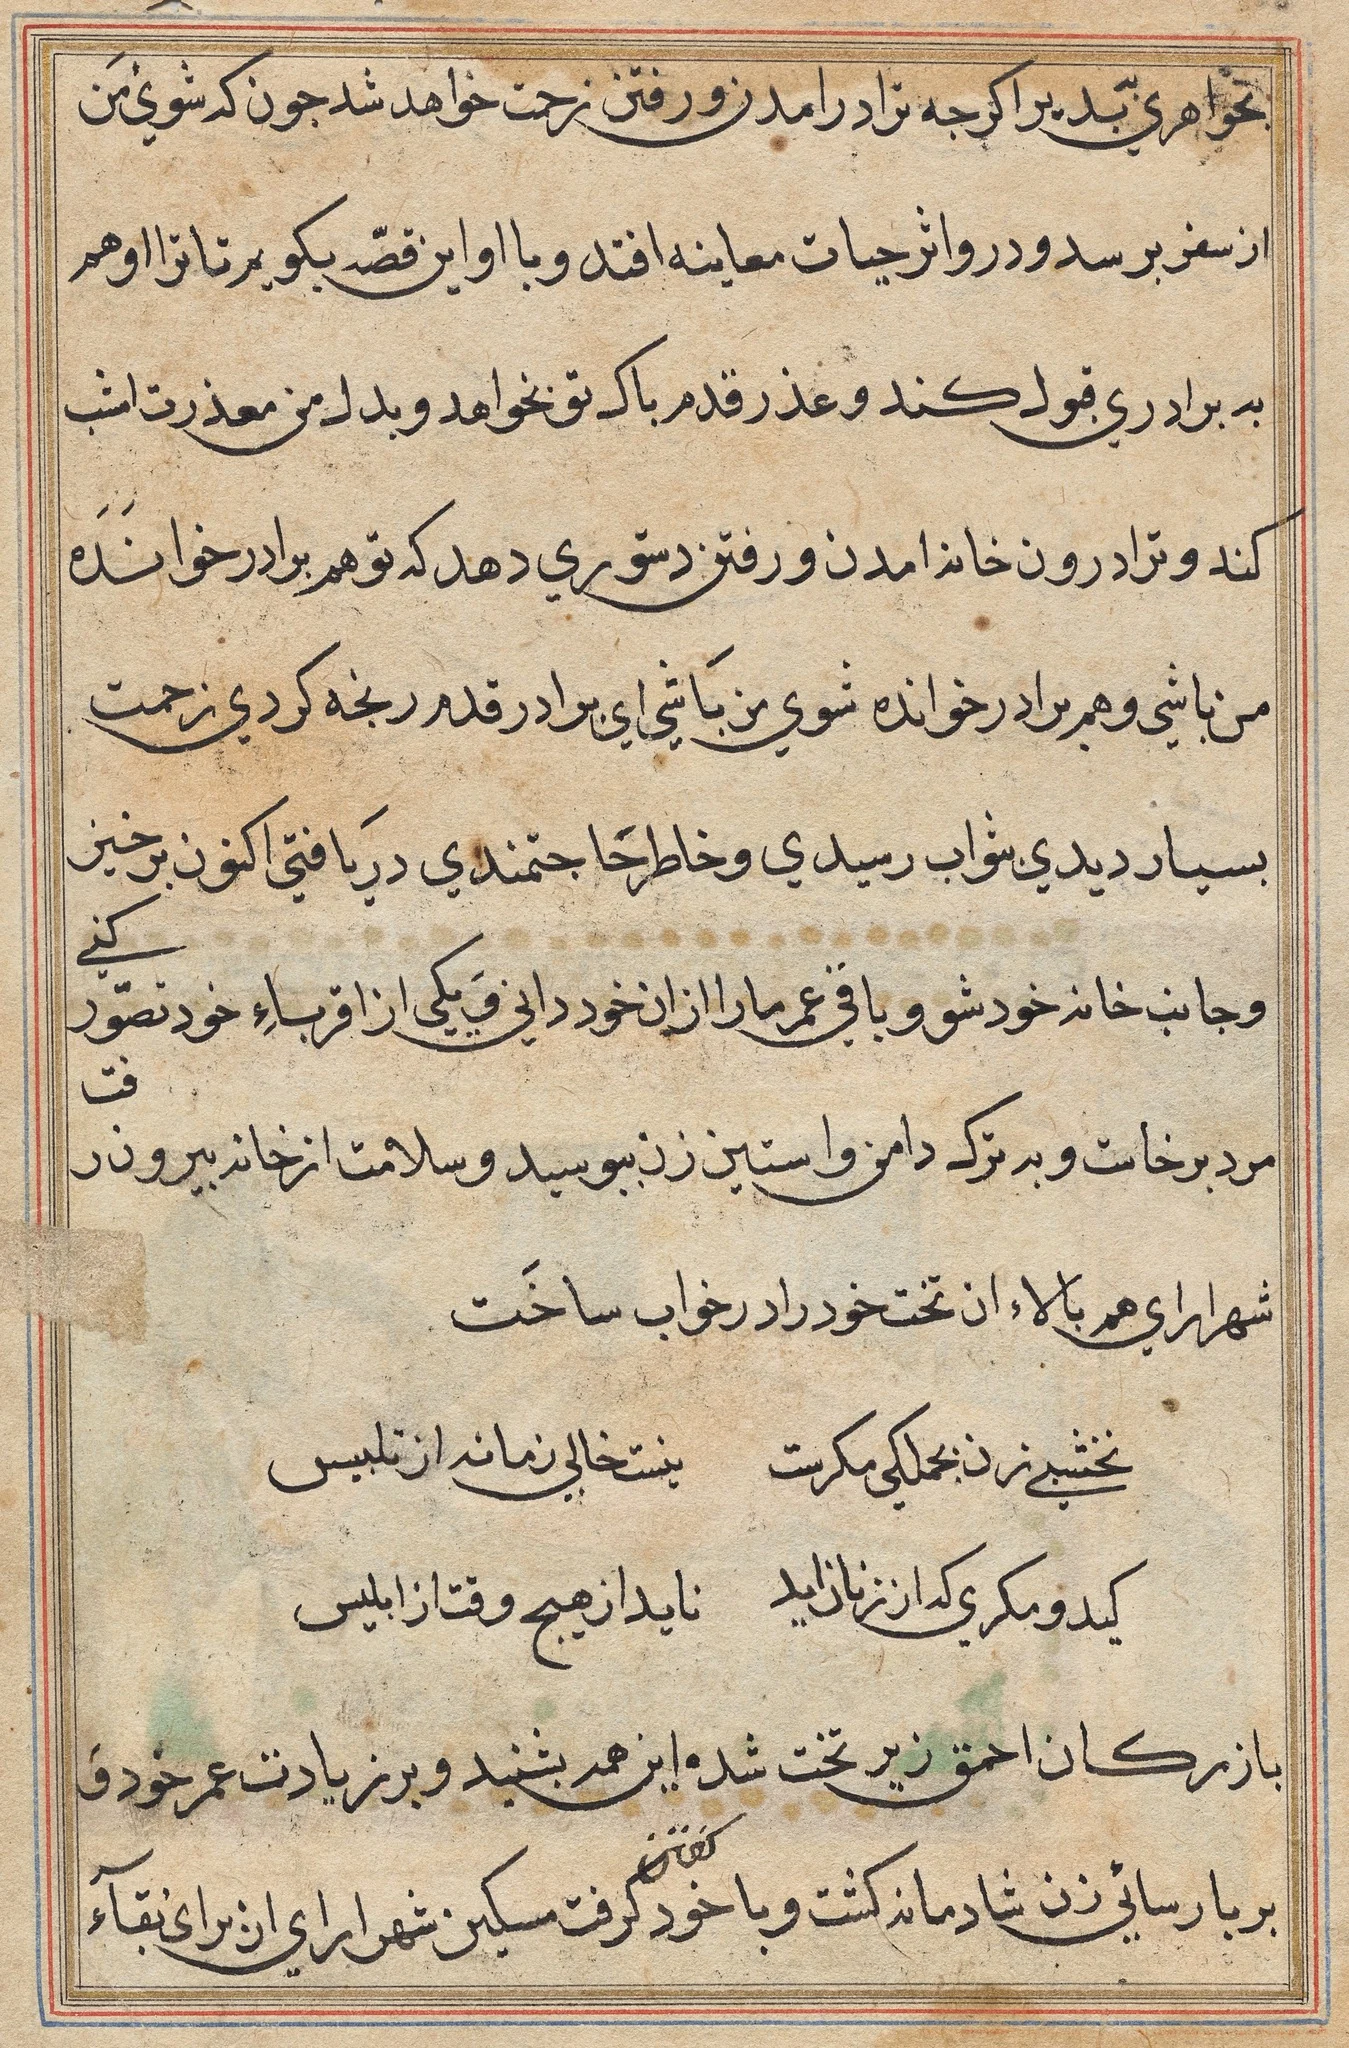 بخواهري بپدیر اکرجه ترا درامدن ورفتن زحمت خواهد شد جون که شوئ من
از سفر برسد و در و اثر حیات معاینه افتد و با او این قصّه بکویم تا ترا او هم
به برادري قبول کند و عذر قدم باکه تو بخواهد و بدل من معذرت امشب
کند و ترا درون خانه امدن ورفتن دستوري دهد که تو هم برادر خوانده
من باشي و هم برادر خوانده شوي من باشي اي برادر قدم رنجه کردي زحمت
بسیار دیدي بثواب رسیدي و خاطر حاجتمندي دریافتي اکنون برخیز
و جانب خانه خود شو و باقي عمر مارا ازان خود داني و یکي از اقرباءِ خود تصّور کني
مرد برخاست و به ترک دامن و استین زن ببوسید و سلامت از خانه بیرون رفت
شهراراي هم بالاء ان تخت خود را در خواب ساخت
نخشبي زن بجملکي مکرست نیست خالي زمانه از تلبیس
کید و مکري که از زنان اید ناید از هیج وقت از ابلیس
بازرکان احمق زیر تخت شده این همه بشنید و بر زیادت عمر خود و
بر پارسائي زن شادمانه کشت و با خود کفتن کرفت مسکین شهراراي ان براي بقآء